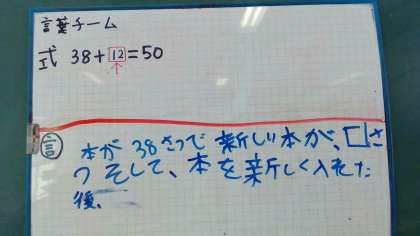 言葉チーム
式 38+12=50
言
本が38さつで新しい本が、□さ
つ そして、本を新しく入れた
後、